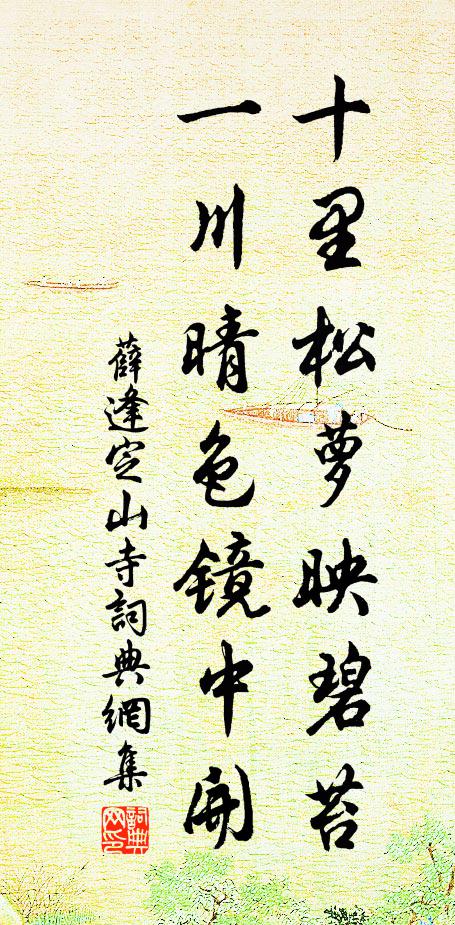 十里松萝映碧苔
一川晴色镜中开
薛逢定山寺詞典網集
詞典网印